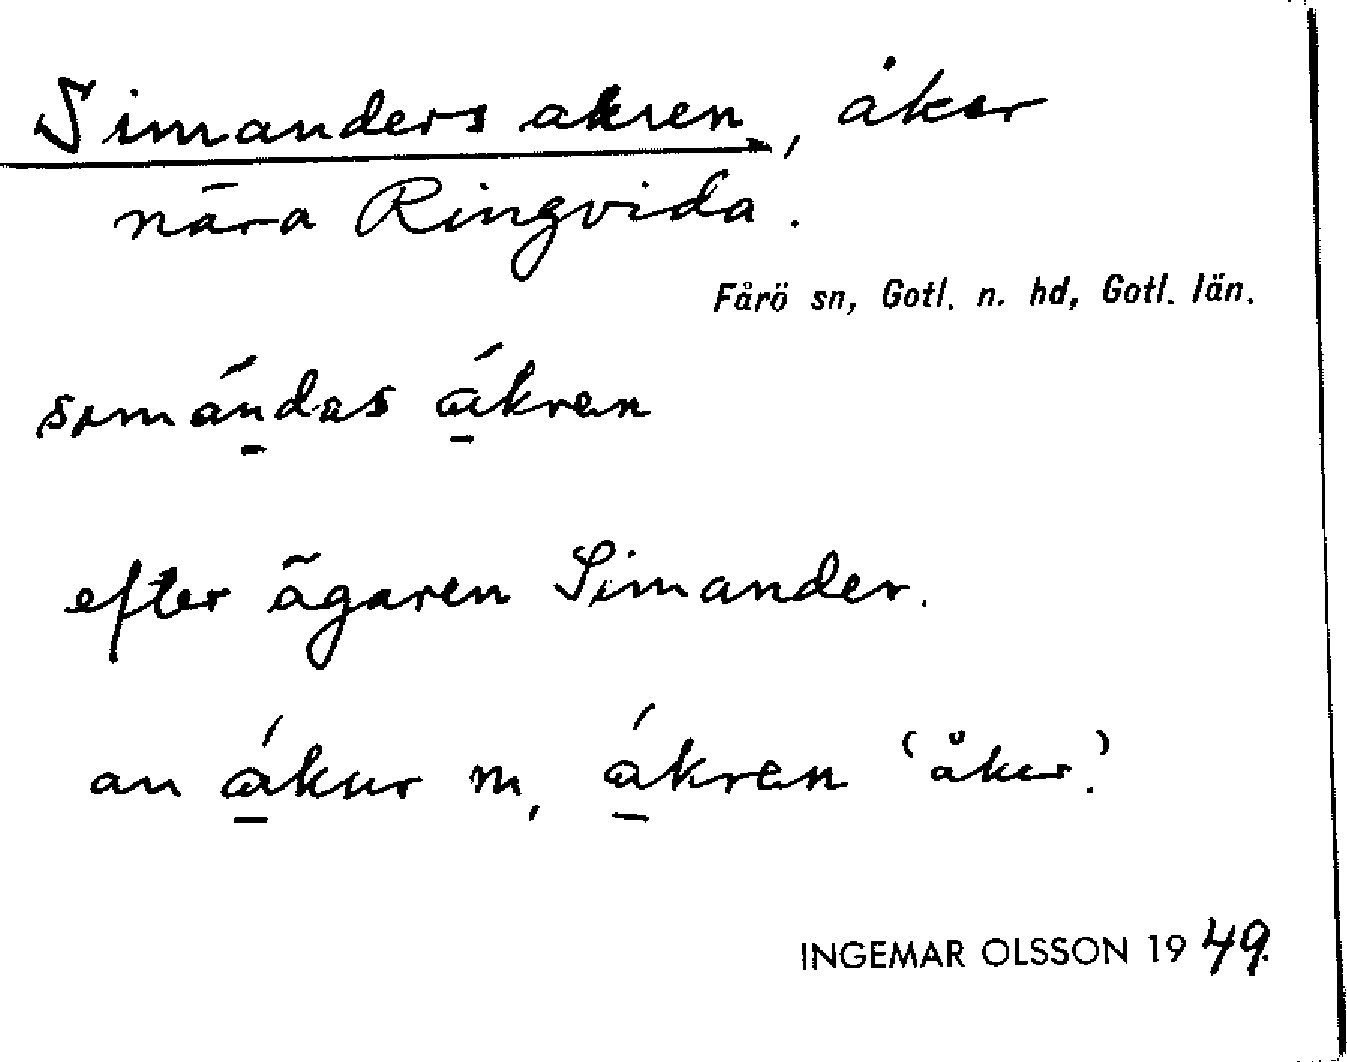 Simanders akren, åker
nära Ringvida.
Fårö sn, Gotl. n. hd, Gotl. län.
simá̱ndas á̱kren
efter ägaren Simander.
an á̱kur m, á̱kren 'åker'.
INGEMAR OLSSON 1949.